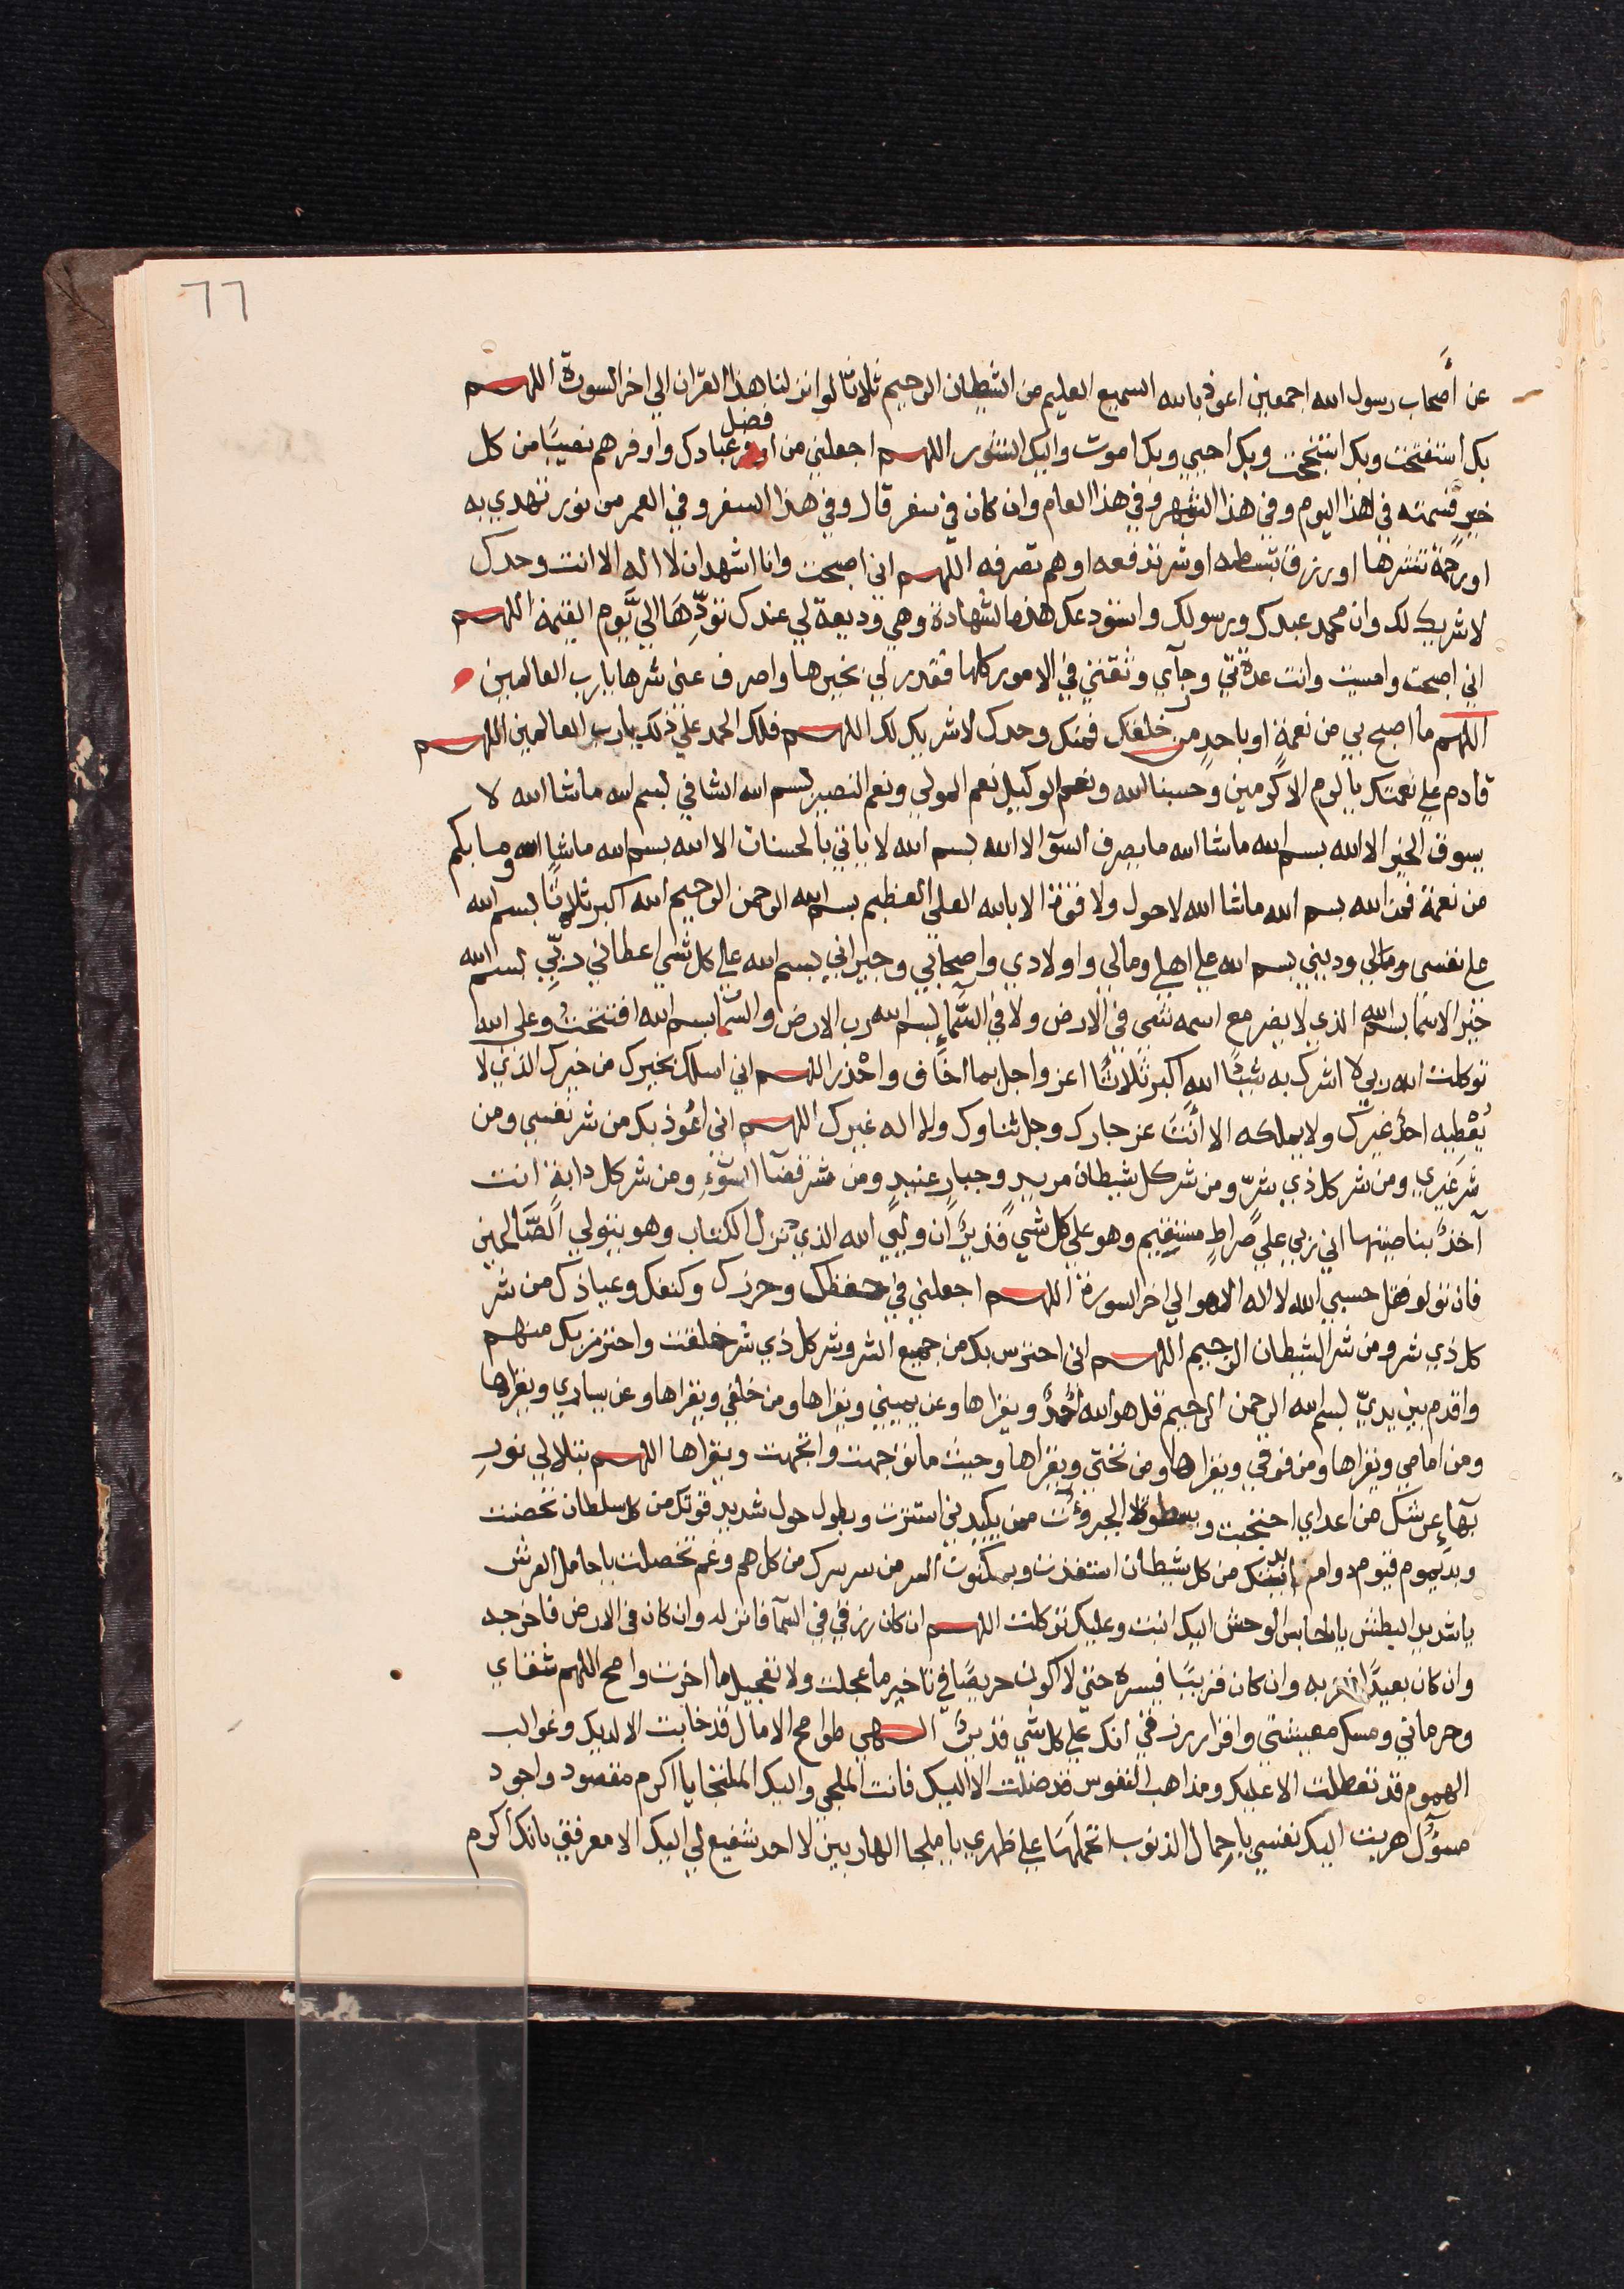 ٦٦
عن أصحاب رسول الله اجمعين اعوذ بالله السميع العليم من الشيطان الرجيم ثلاثا لو انزلنا هذا القران الي اخر السورة اللهم
بك استفتحت وبك استنجحت وبك احيي وبك اموت واليك النشور اللهم اجعلني من افضل عبادك واوفرهم نصيبًا من كل
خيرٍ قسمته في هذا اليوم وفي هذا الشهر وفي هذا العام وان كان في سفر قال وفي هذا السفر وفي العمر من نور تهدي به
او رحمة تنشرها او رزق تبسطه او شر تدفعه او هم تصرفه اللهم اني اصبحت وانا اشهد ان لا اله الا انت وحدك
لا شريك لك وان محمد عبدك ورسولك واستودعك هذه الشهادة وهي وديعة لي عندك تودّها الي يوم القيمة اللهم
اني اصبحت وامسيت وانت عدتي وجآي وثقتي في الامور كلها فقدر لي بخيرها واصرف عني شرها يارب العالمين
اللهم ما اصبح بي من نعمة او باحدٍ من خلقك فمنك وحدك لا شريك لك اللهم فلك الحمد علي ذلك يارب العالمين اللهم
فادم علي نعمتك يا اكرم الاكرمين وحسبنا الله ونعم الوكيل نعم المولي ونعم النصير بسم الله الشافي بسم الله ماشا الله لا
يسوق الخير الا الله بسم الله ماشا الله ما يصرف السوٓ الا الله بسم الله لا ياتي بالحسنات الا الله بسم الله ماشا الله وما بكم
من نعمة فمن الله بسم الله ماشا الله لا حول ولا قوة الا بالله العلي العظيم بسم الله الرحمن الرحيم الله اكبر ثلاثًا بسم الله
علي نفسي ومالي وديني بسم الله علي اهلي ومالي واولادي واصحابي وجيراني بسم الله علي كل شي اعطاني ربّي بسم الله
خير الاسما بسم الله الذي لا يضر مع اسمه شي في الارض ولا في السَّماءِ بسم الله رب الارض والسّما بسم الله افتتحت وعلي الله
توكلت الله ربي لا اشرك به شيئًا الله اكبر ثلاثًا اعز واجل مما اخاف واحْذر اللهم اني اسلك بخيرك من خيرك الذي لا
يُعْطِيه احدٌ غيرك ولا يملكه الا أنْتَ عز جارك وجل ثناوك ولا اله غيرك اللهم اني اعُوذ بك من شر نفسي ومن
شر غيري ومن شر كل ذي شرّ ومن شر كل شيطان مريدٍ وجبارٍ عنيدٍ ومن شر قضآ السّوءِ ومن شر كل دابة انت
آخذ بناصيتها ان ربي علي صراطٍ مستقيم وهو علي كل شي قدير ان وليِّي الله الذي نزل الكتاب وهو يتولي الصّالحين
فان تولو فقل حسبي الله لا اله الا هو الي اخر السورة اللهم اجعلني في حفظك وحرزك وكنفك وعياذك من شر
كل ذي شر ومن شر الشيطان الرجيم اللهم اني احترس بك من جميع الشر وشر كل ذي شر خلقت واحترز بك منهم
واقدم بين يديّ بسم الله الرحمن الرحيم قل هو الله أحدٌ ويقراها وعن يميني ويقراها ومن خلفي ويقراها وعن يساري ويقراها
ومن امامي ويقراها ومن فوقي ويقراها ومن تحتي ويقراها وحيث ما توجهت واتجهت ويقراها اللهم بتلالي نورِ
بهآءِ عرشك من اعداي احتجبت وبسطوة الجبروت ممن يكيدني استترت وبطول حول شديد قوتك من كل سلطان تحصنت
وبديموم قيوم دوام ابديتك من كل شيطان استعذت وبمكنون السر من سر سرك من كل هم وغم تخصلت ياحامل العرش
ياشديد البطش ياحابس الوحش اليك انبت وعليك توكلت اللهم ان كان رزقي في السمآ فانزله وان كان في الارض فاخرجه
وان كان بعيدًا فقربه وان كان قريبًا فيسره حتي لا اكون حريصًا في تاخير ما عجلت ولا تعجيل ما اخرت وامح اللهم شقاي
وحرماني ومسك معيشتي واقرار رزقي انك علي كل شي قدير الهي طوامح الامال قد خابت الا لديك وعوالب
الهموم قد تعطلت الا عليك ومذاهب النفوس قد ضلت الا اليك فانت الملجي واليك الملتجا يا اكرم مقصود واجود
مسؤل هربت اليك نفسي ياحمال الذنوب اتحملها علي ظهري يا ملجا الهاربين لا احد شفيع لي اليك الا معرفتي بانك اكرم